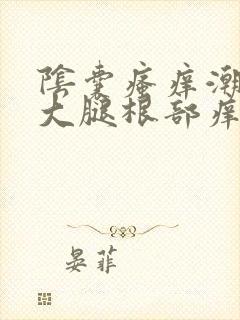 陰囊瘙痒潮
大腿根部痒
晏菲